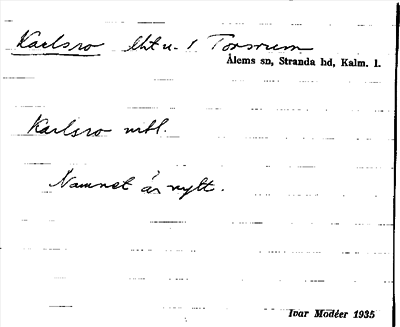 Karlsro lht u. 1 Torsrum
Ålems sn, Stranda hd, Kalm. l.
Karlsro mtl.
Namnet är nytt.
Ivar Modéer 1935